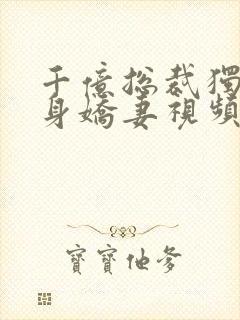 千億总裁獨
身嬌妻視頻
寶寶他爹